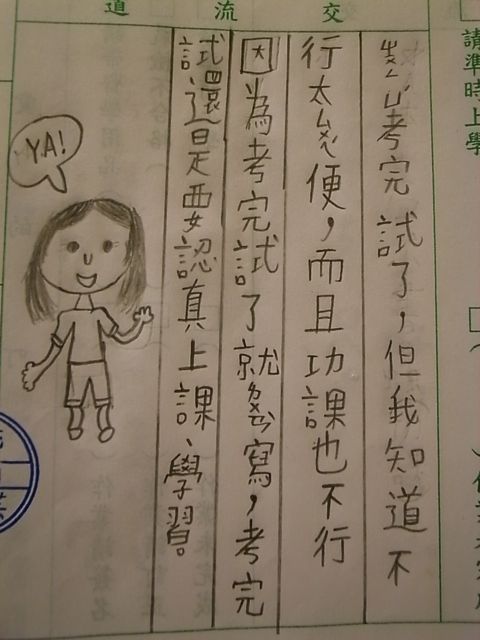 請準時上學
交流道
考完試了，但我知道不
行太便，而且功課也不行
因為考完試了就寫，考完
試還是要認真上課、學習。
YA!